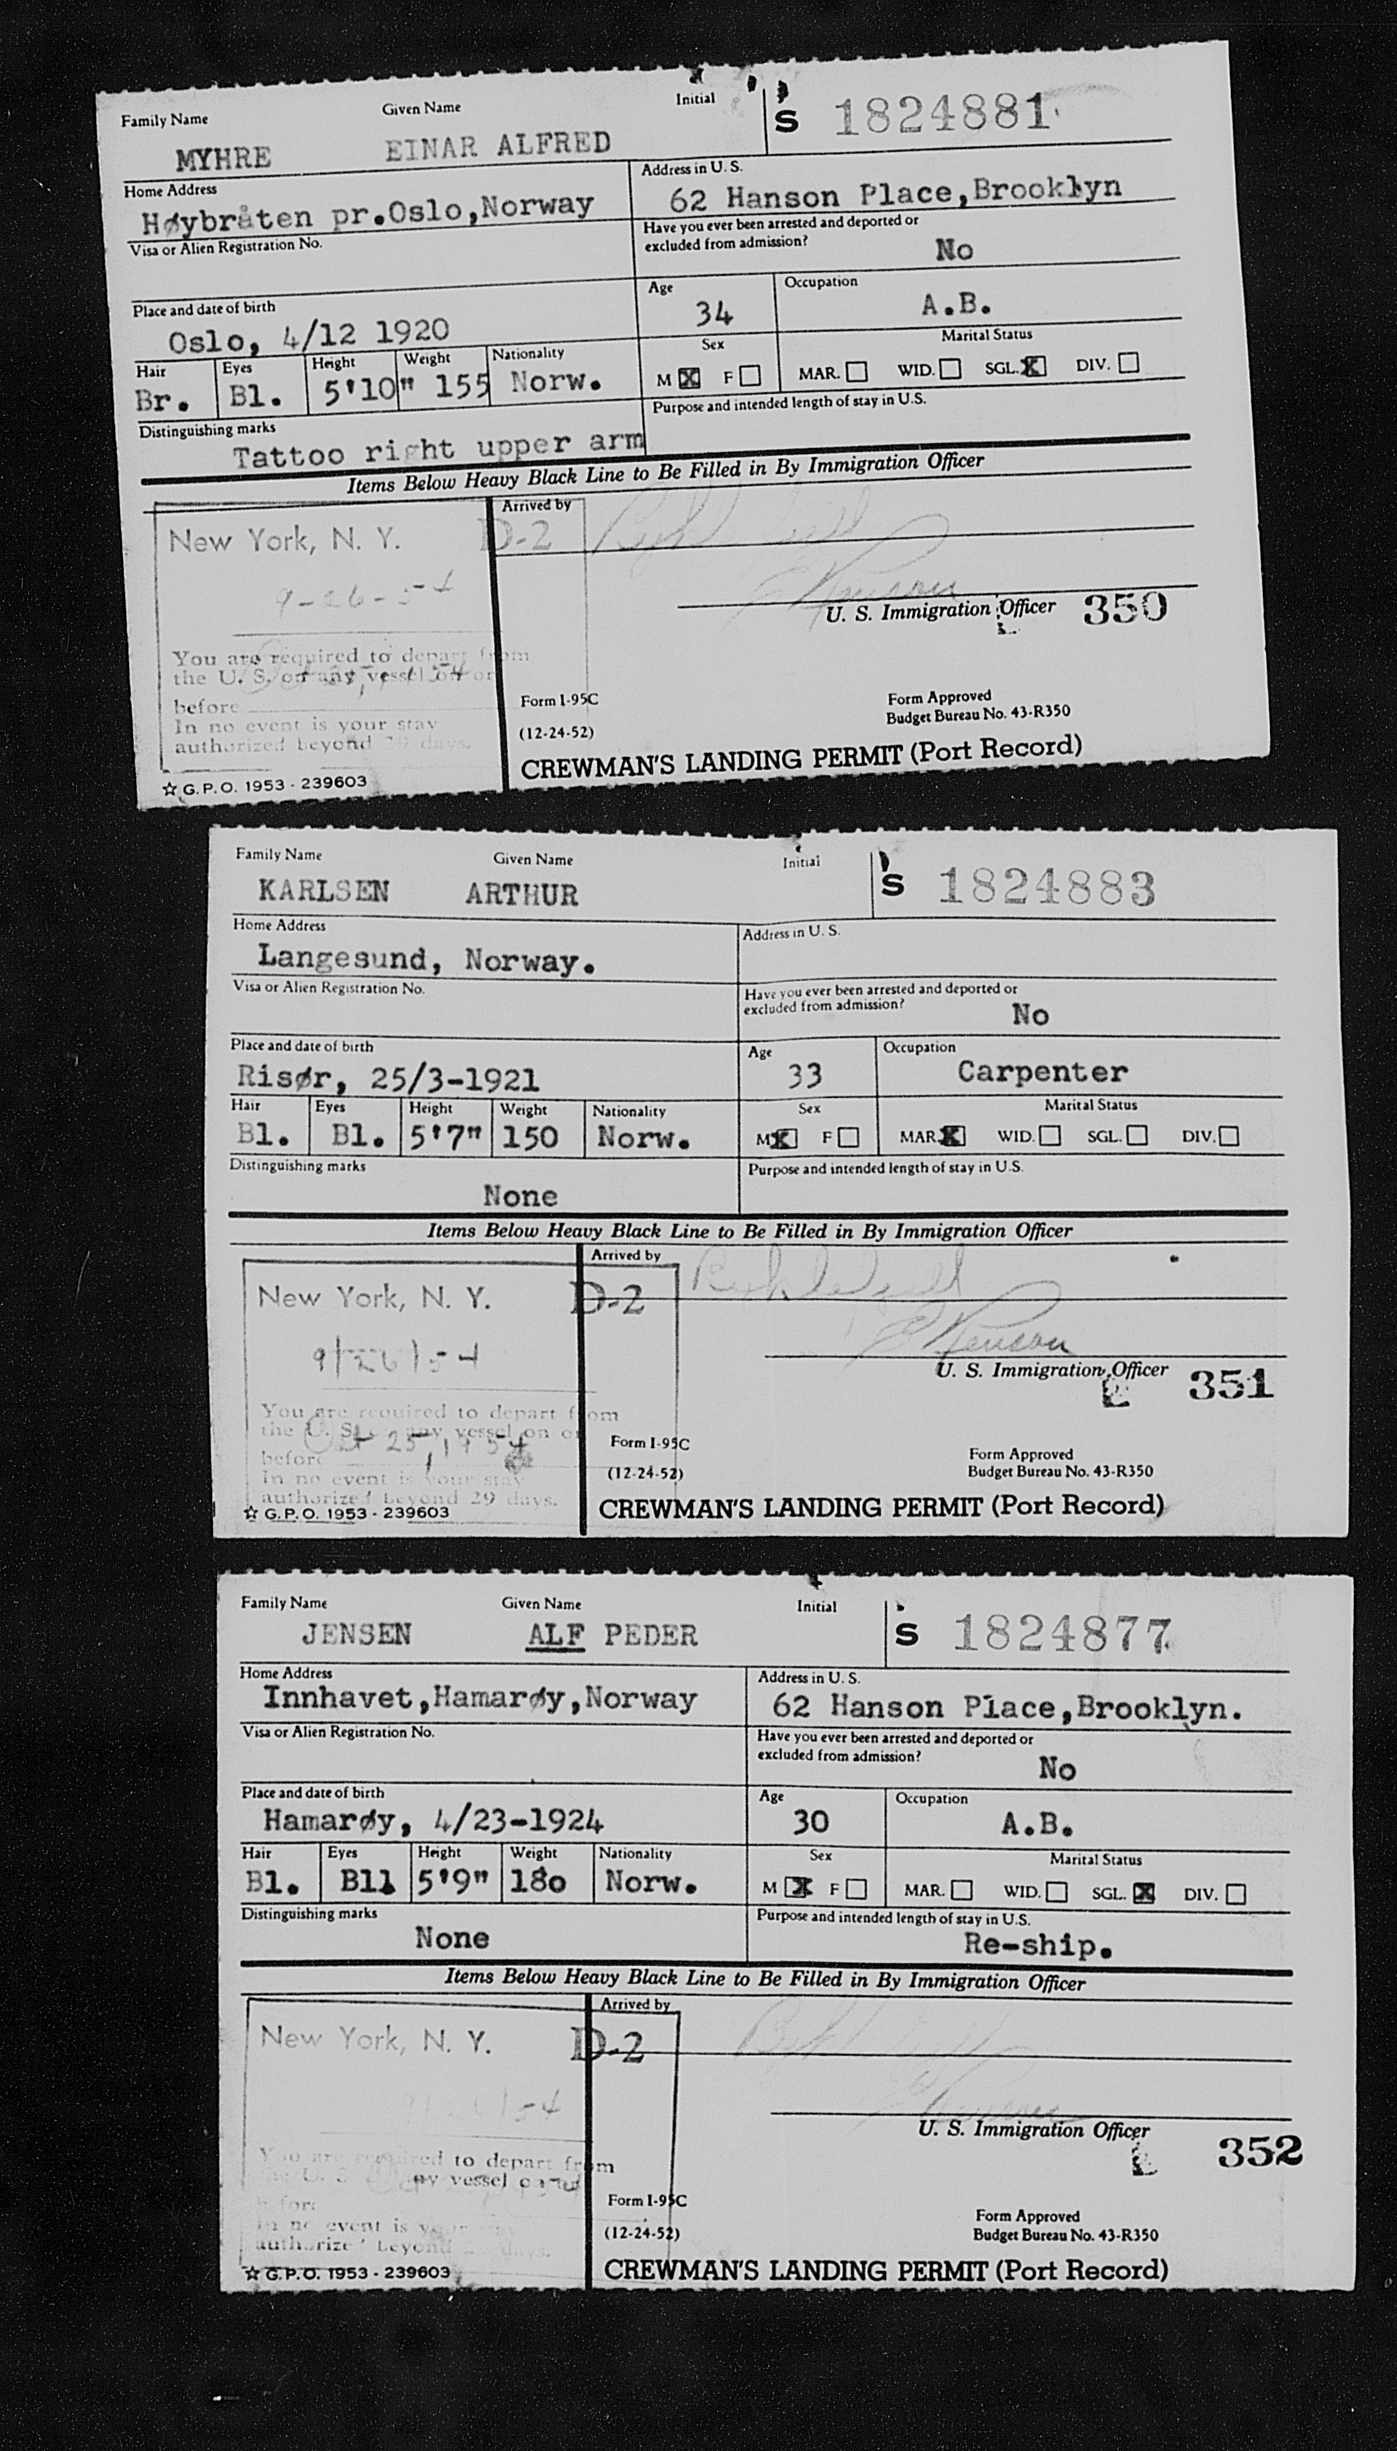 Family Name Given Name Initial S 1824881
MYHRE EINAR ALFRED
Home Address Address in U. S.
Høybråten pr.Oslo,Norway 62 Hanson Place,Brooklyn
Visa or Alien Registration No. Have you ever been arrested and deported or
excluded from admission? No
Place and date of birth Age Occupation
Oslo, 4/12 1920 34 A.B.
Hair Eyes Height Weight Nationality Sex Marital Status
Br. Bl. 5'10" 155 Norw. M X F MAR. WID. SGL. X DIV.
Distinguishing marks Purpose and intended length of stay in U.S.
Tattoo right upper arm
Items Below Heavy Black Line to Be Filled in By Immigration Officer
Arrived by
New York, N. Y. D-2
9-26-54
U. S. Immigration Officer 350
You are required to depart from
the U. S. on any vessel on or
before
In no event is your stay
authorized beyond 29 days.
Form I-95C Form Approved
(12-24-52) Budget Bureau No. 43-R350
CREWMAN'S LANDING PERMIT (Port Record)
☆ G.P.O. 1953 - 239603
Family Name Given Name Initial S 1824883
KARLSEN ARTHUR
Home Address Address in U. S.
Langesund, Norway.
Visa or Alien Registration No. Have you ever been arrested and deported or
excluded from admission? No
Place and date of birth Age Occupation
Risør, 25/3-1921 33 Carpenter
Hair Eyes Height Weight Nationality Sex Marital Status
Bl. Bl. 5'7" 150 Norw. M X F MAR. X WID. SGL. DIV.
Distinguishing marks Purpose and intended length of stay in U.S.
None
Items Below Heavy Black Line to Be Filled in By Immigration Officer
Arrived by
New York, N. Y. D-2
9/26/54
U. S. Immigration Officer 351
You are required to depart from
the U. S. on any vessel on or
before Oct 25, 1954
In no event is your stay
authorized beyond 29 days.
Form I-95C Form Approved
(12-24-52) Budget Bureau No. 43-R350
CREWMAN'S LANDING PERMIT (Port Record)
☆ G.P.O. 1953 - 239603
Family Name Given Name Initial S 1824877
JENSEN ALF PEDER
Home Address Address in U. S.
Innhavet,Hamarøy,Norway 62 Hanson Place,Brooklyn.
Visa or Alien Registration No. Have you ever been arrested and deported or
excluded from admission? No
Place and date of birth Age Occupation
Hamarøy, 4/23-1924 30 A.B.
Hair Eyes Height Weight Nationality Sex Marital Status
Bl. Bll 5'9" 180 Norw. M X F MAR. WID. SGL. X DIV.
Distinguishing marks Purpose and intended length of stay in U.S.
None Re-ship.
Items Below Heavy Black Line to Be Filled in By Immigration Officer
Arrived by
New York, N. Y. D-2
U. S. Immigration Officer 352
You are required to depart from
the U. S. any vessel on
before
In no event is your
authorized beyond days.
Form I-95C Form Approved
(12-24-52) Budget Bureau No. 43-R350
CREWMAN'S LANDING PERMIT (Port Record)
☆ G.P.O. 1953 - 239603